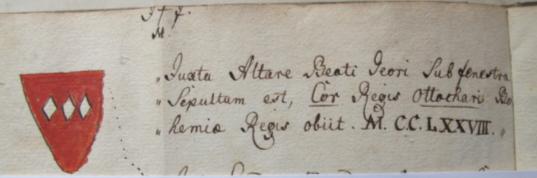 I † f.
M.
„Juxta Altare Beati Jeori Sub fenestra
„Sepultam est, Cor Regis Ottochari Bo
„hemiæ Regis obiit. M. C C. L XXVIII.„